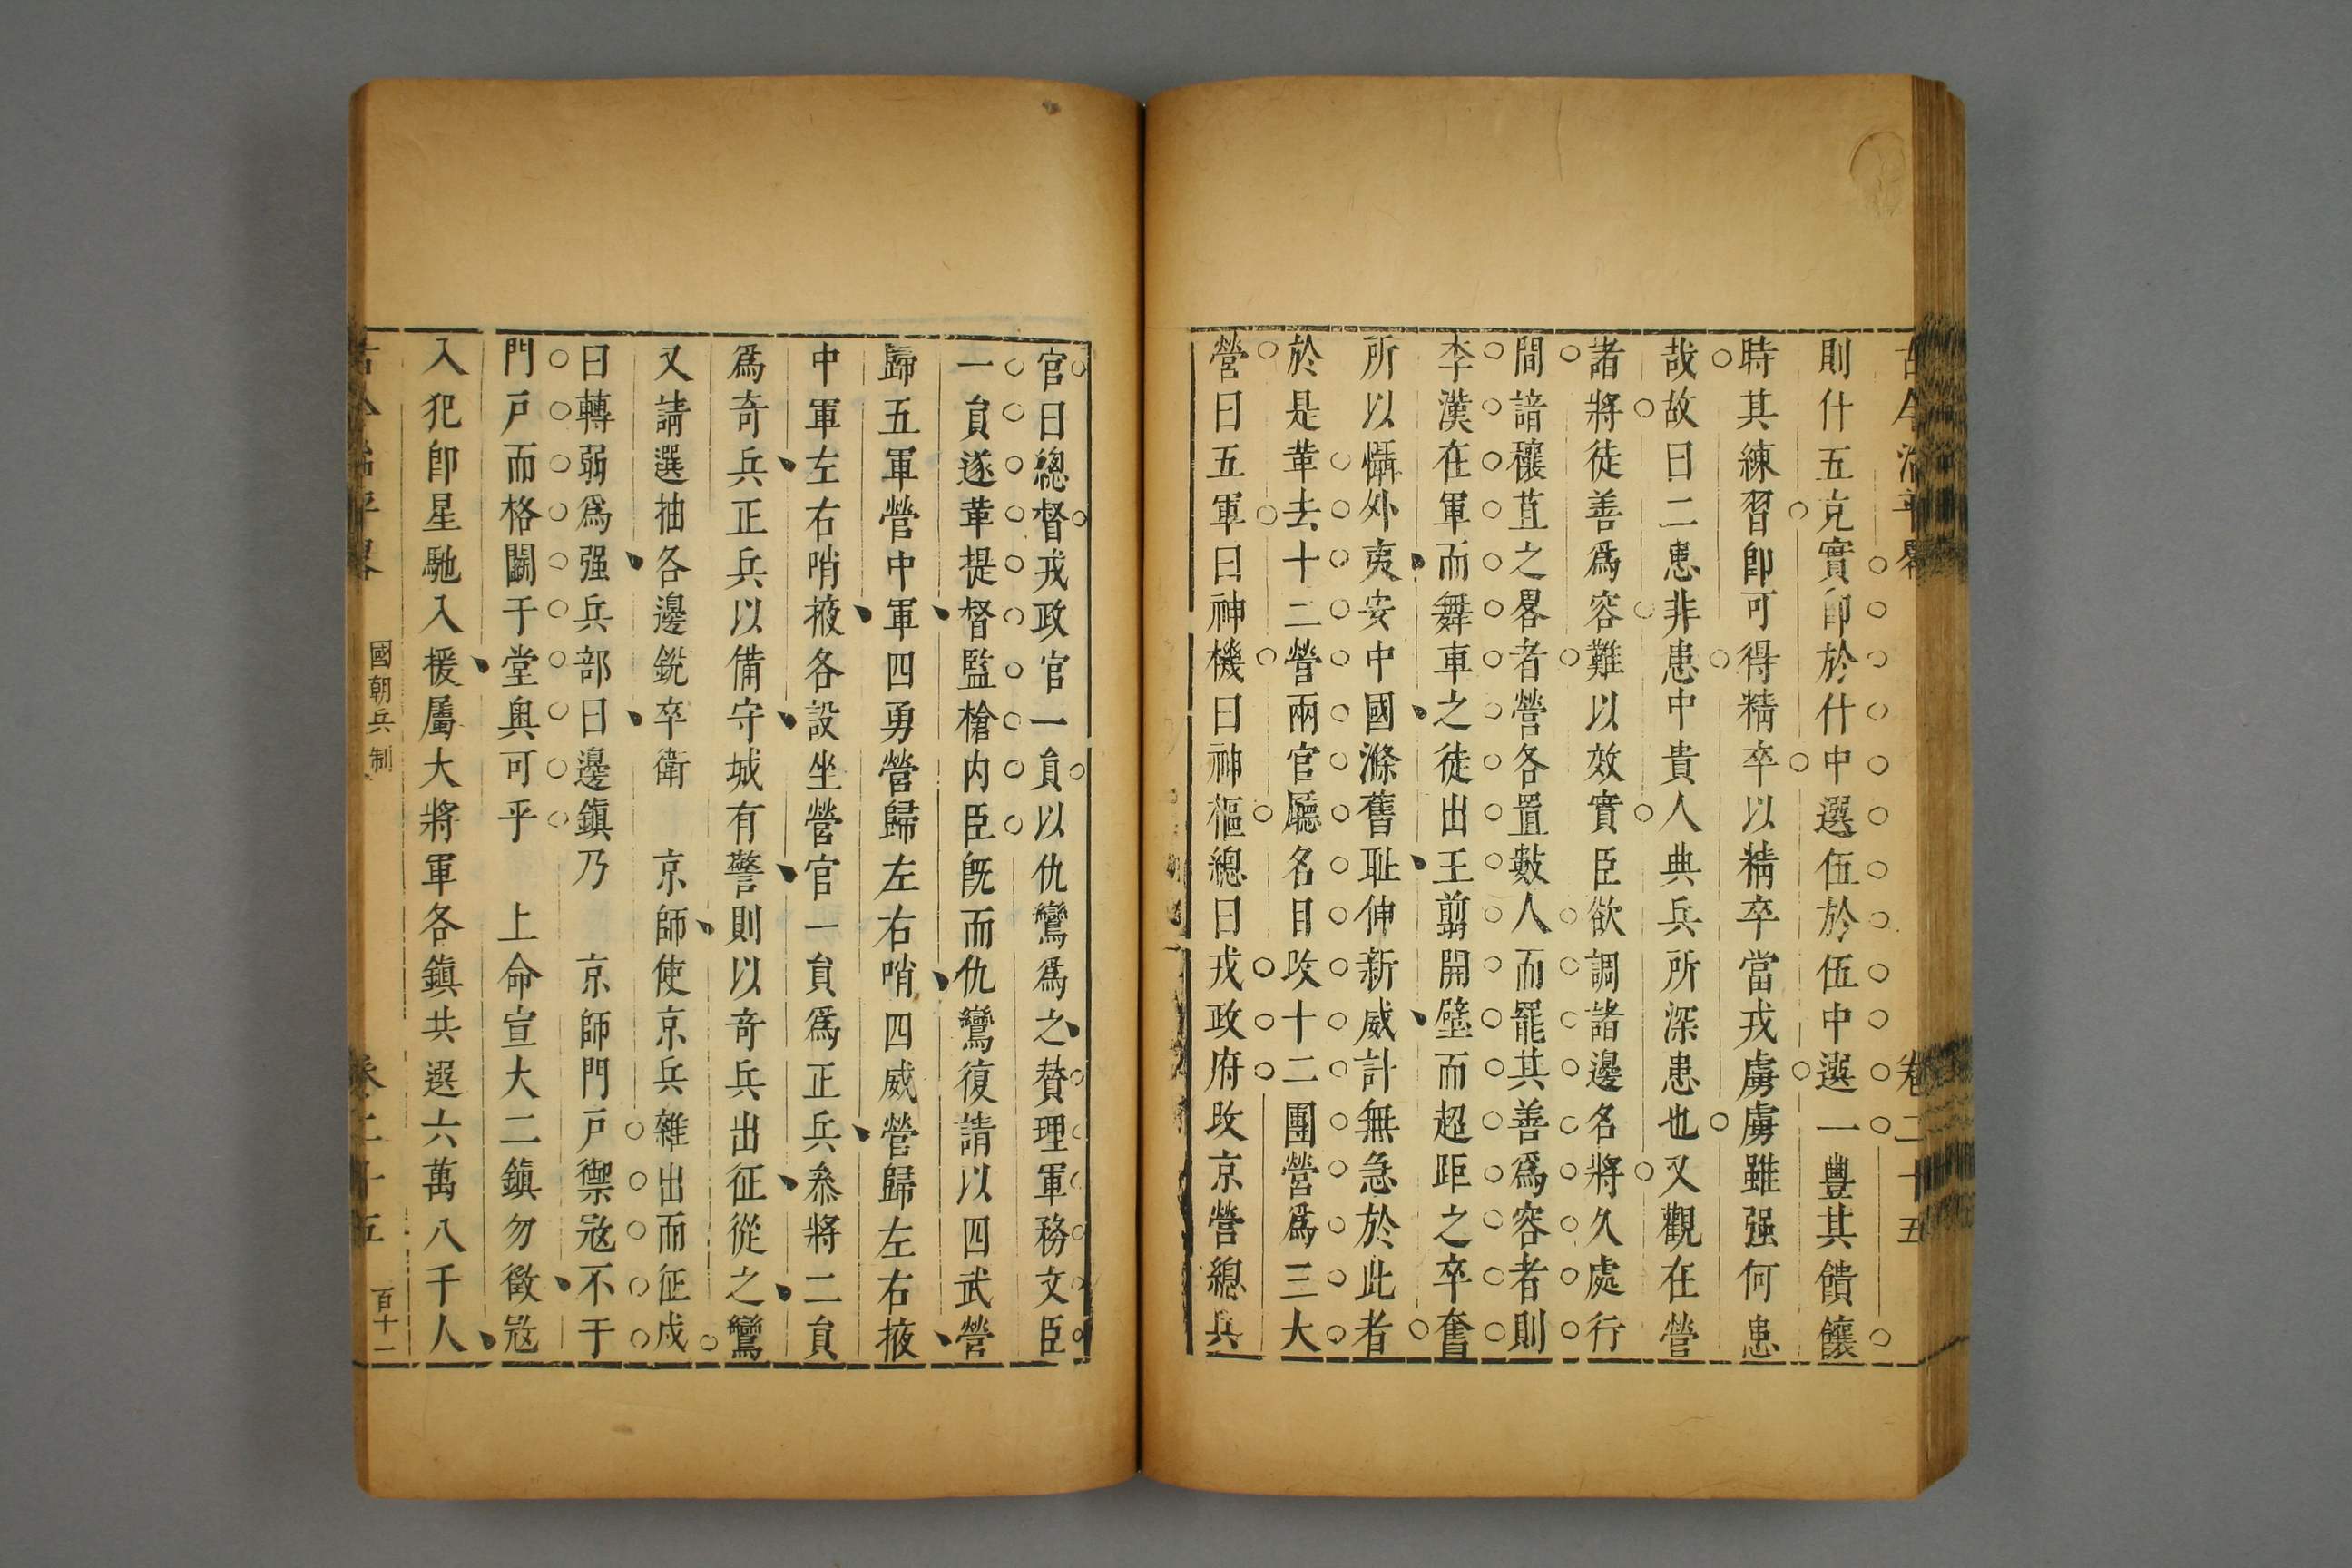 古今治平畧 卷二十五
則什五克實卽於什中選伍於伍中選一豊其饋饟
時其練習卽可得精卒以精卒當戎虜虜雖强何患
哉故曰二患非患中貴人典兵所深患也又觀在營
諸將徒善爲容難以效實臣欲調諸邊名將久處行
間諳穰苴之畧者營各置數人而罷其善爲容者則
李漢在軍而舞車之徒出王翦開壁而超距之卒奮
所以懾外夷安中國滌舊耻伸新威計無急於此者
於是革去十二營兩官廳名目攺十二團營爲三大
營曰五軍曰神機曰神樞總曰戎政府攺京營總兵
官曰總督戎政官一負以仇鸞爲之賛理軍務文臣
一負遂革提督監槍内臣旣而仇鸞復請以四武營
歸五軍營中軍四勇營歸左右哨四威營歸左右掖
中軍左右哨掖各設坐營官一負爲正兵叅將二負
爲奇兵正兵以備守城有警則以奇兵出征從之鸞
又請選抽各邊銳卒衛 京師使京兵雜出而征戍
曰轉弱爲强兵部曰邊鎭乃 京師門戸禦宼不于
門戸而格鬬于堂奥可乎 上命宣大二鎭勿徵宼
入犯卽星馳入援屬大將軍各鎭共選六萬八千人
古今治平畧 國朝兵制 卷二十五 百十一